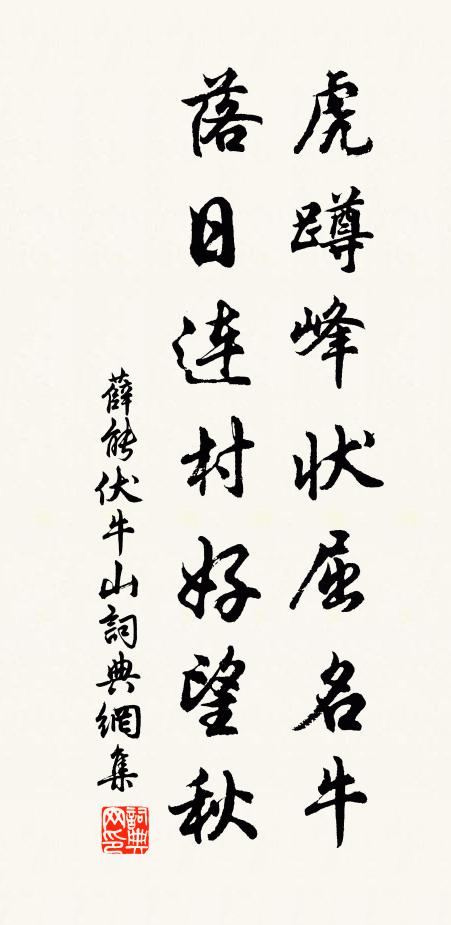 虎蹲峰状屈名牛
落日连村好望秋
薛能伏牛山詞典網集
詞典网印